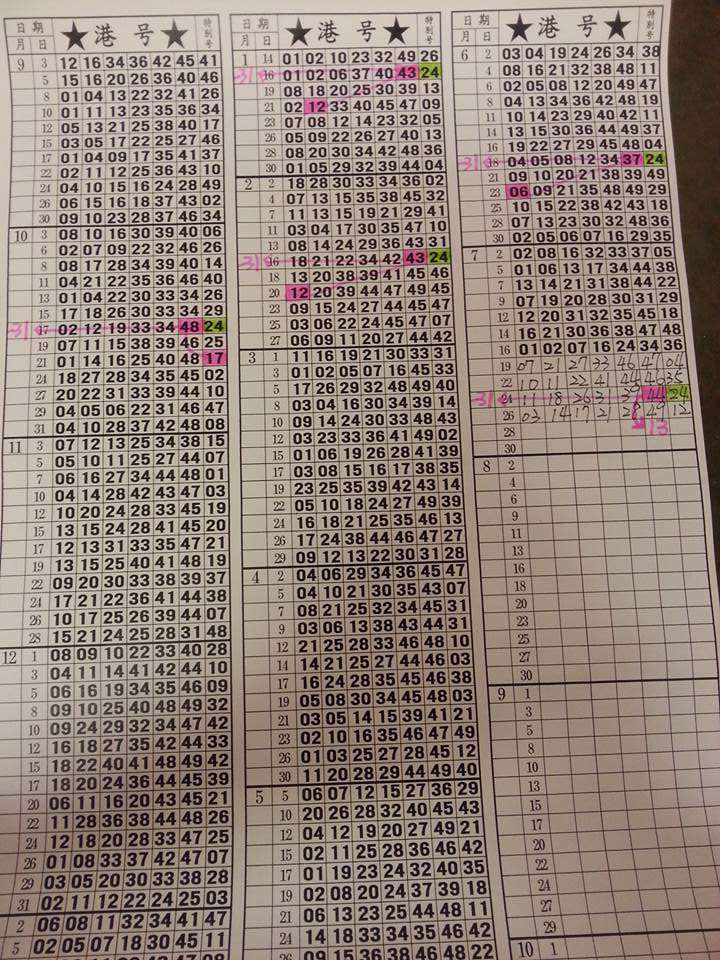 日 期 ★ 港 号 ★ 特别号
月 日
9 3 12 16 34 36 42 45 41
5 15 16 20 26 36 40 46
8 01 04 13 22 32 41 26
10 01 11 13 23 35 36 34
12 05 13 21 25 38 40 17
15 03 05 17 22 25 27 46
17 01 04 09 17 35 41 37
22 02 11 12 25 36 43 10
24 04 10 15 16 24 28 49
26 06 15 16 18 37 43 02
30 09 10 23 28 37 46 34
10 3 08 10 16 30 39 40 06
6 02 07 09 22 32 46 26
8 08 17 28 34 39 40 14
11 04 21 22 35 36 46 40
13 01 04 22 30 33 34 26
15 17 18 26 30 33 34 29
31 17 02 12 19 33 34 48 24
19 07 11 15 38 39 46 25
21 01 14 16 25 40 48 17
24 18 27 28 34 35 45 02
27 20 22 31 33 39 44 10
29 04 05 06 22 31 46 47
31 04 10 28 37 42 48 08
11 3 07 12 13 25 34 38 15
5 05 10 11 25 27 44 07
7 06 16 27 34 44 48 01
10 04 14 28 42 43 47 03
12 10 20 24 28 33 45 19
15 13 15 24 28 41 45 20
17 12 13 31 33 35 47 21
19 13 15 25 40 41 48 19
22 09 20 30 33 38 39 37
24 17 21 22 36 41 44 38
26 10 17 25 26 39 44 07
28 15 21 24 25 28 31 48
12 1 08 09 10 22 33 40 28
3 04 11 14 41 42 44 10
5 06 16 19 34 35 46 09
8 09 10 25 40 48 49 32
10 09 24 29 32 34 47 42
12 16 18 27 35 42 44 33
15 18 22 40 41 48 49 42
17 18 20 24 36 44 45 39
20 06 11 16 20 43 45 21
22 11 28 36 38 44 48 26
24 12 18 20 28 33 47 25
26 01 08 33 37 42 47 07
29 03 05 20 30 33 38 28
31 02 11 12 22 24 25 03
2 06 08 11 32 34 41 47
5 02 05 07 18 30 45 11
日 期 ★ 港 号 ★ 特别号
月 日
1 14 01 02 10 23 32 49 26
31 16 01 02 06 37 40 43 24
19 08 18 20 25 30 39 13
21 02 12 33 40 45 47 09
23 07 08 12 14 23 32 05
26 05 09 22 26 27 40 13
28 08 20 30 34 42 48 36
30 01 05 29 32 39 44 04
2 2 18 28 30 33 34 36 02
4 07 13 15 35 38 45 32
7 11 13 15 19 21 29 41
11 03 04 17 30 35 47 10
13 08 14 24 29 36 43 31
31 16 18 21 22 34 42 43 24
18 13 20 38 39 41 45 46
20 12 20 39 44 47 49 45
23 09 15 24 27 44 45 47
25 03 06 22 24 45 47 07
27 06 09 11 20 27 44 42
3 1 11 16 19 21 30 33 31
3 01 02 05 07 16 45 33
5 17 26 29 32 48 49 40
8 03 04 16 30 34 39 14
10 09 14 24 30 33 48 43
12 03 23 33 36 41 49 02
15 01 06 19 26 28 41 39
17 03 08 15 16 17 38 35
19 23 25 35 39 42 43 14
22 05 10 18 24 27 49 39
24 16 18 21 25 35 46 13
26 17 24 38 44 46 47 27
29 09 12 13 22 30 31 28
4 2 04 06 29 34 36 45 47
5 04 10 21 30 35 43 07
7 08 21 25 32 34 45 31
9 03 06 13 38 43 44 31
12 21 25 28 33 46 48 10
14 14 21 25 27 44 46 03
17 16 24 28 35 45 46 38
19 05 08 30 34 45 48 03
21 03 05 14 15 39 41 21
23 02 10 16 35 46 47 49
26 01 03 25 27 28 45 12
30 11 20 28 29 44 49 40
5 5 06 07 12 15 27 36 29
10 20 26 28 32 40 45 43
12 04 12 19 20 27 49 21
15 02 11 25 28 36 46 42
17 01 19 23 24 32 40 35
19 02 08 20 24 37 39 18
21 06 13 23 25 44 48 11
24 14 18 33 34 35 46 44
26 09 15 36 38 46 48 22
日 期 ★ 港 号 ★ 特别号
月 日
6 2 03 04 19 24 26 34 38
4 08 16 21 32 38 48 11
6 02 05 08 12 20 49 47
8 04 13 34 36 42 48 19
11 10 14 23 29 40 42 11
14 13 15 30 36 44 49 37
16 19 22 27 29 45 48 04
31 18 04 05 08 12 34 37 24
21 09 10 20 21 38 39 49
23 06 09 21 35 48 49 29
25 10 15 22 38 42 43 18
28 07 13 23 30 32 48 36
30 02 05 06 07 16 29 35
7 2 02 08 16 32 33 37 05
5 01 06 13 17 34 44 38
7 13 14 21 31 38 44 22
9 07 19 20 28 30 31 29
12 12 20 31 32 35 45 18
14 16 21 30 36 38 47 48
16 01 02 07 16 24 34 36
19 07 21 27 33 46 47 04
22 10 11 22 41 44 46 35
31 24 11 18 26 3 39 44 24
26 03 14 17 21 28 49 12
28 13
30
8 2
4
6
9
11
13
16
18
20
23
25
27
30
9 1
3
5
8
10
13
15
17
20
22
24
27
29
10 1